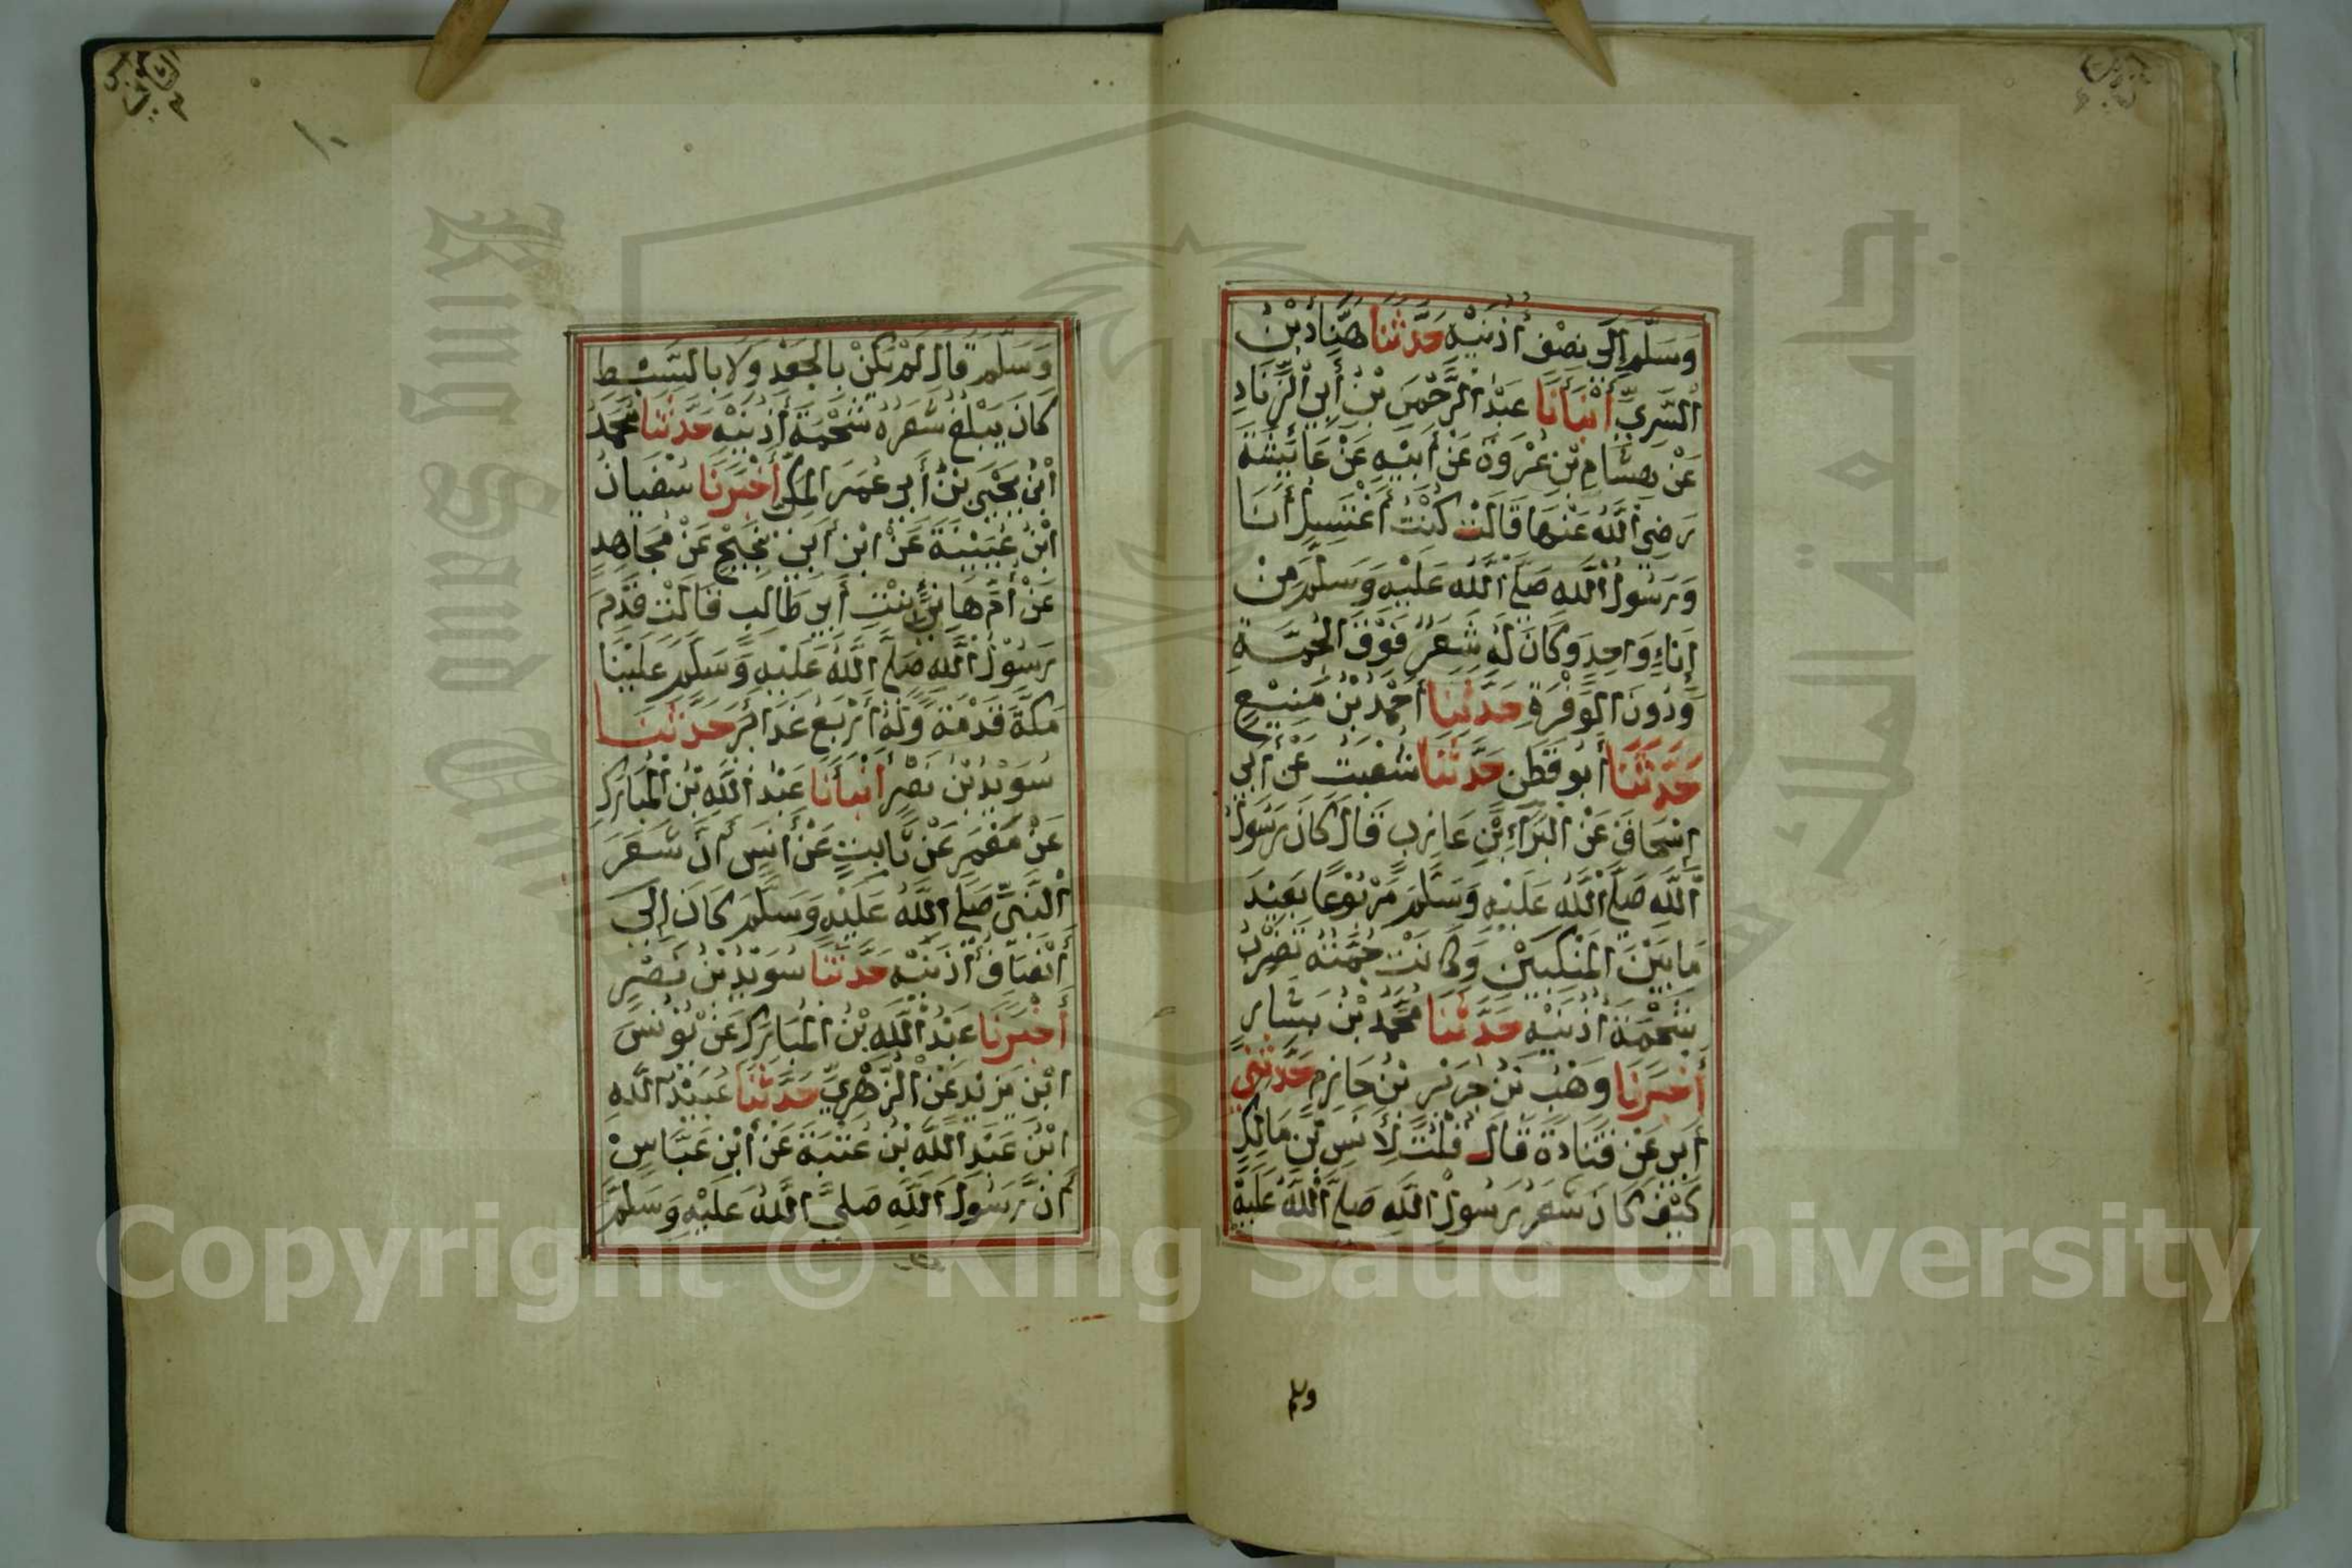 وَسَلَّمَ إِلَى نِصْفِ أُذُنَيْهِ حَدَّثَنَا هَنَّادُ بْنُ
السَّرِيِّ أَنْبَأَنَا عَبْدُ الرَّحْمَنِ بْنُ أَبِي الزِّنَادِ
عَنْ هِشَّامِ بْنِ عُرْوَةَ عَنْ أَبِيْهِ عَنْ عَائِشَةَ
رَضِيَ اللَّهُ عَنْهَا قَالَتْ كُنْتُ أَغْتَسِلُ أَنَا
وَرَسُولُ اللَّهِ صَلَّى اللَّهُ عَلَيْهِ وَسَلَّمَ مِنْ
إِنَاءٍ وَاحِدٍ وَكَانَ لَهُ شَعَرٌ فَوْقَ الْجُمَّةِ
وَدُونَ الْوَفْرَةِ حَدَّثَنَا أَحْمَدُ بْنُ مَنِيْعٍ
حَدَّثَنَا أَبُو قَطَنٍ حَدَّثَنَا شُعْبَتُ عَنْ أَبِي
إِسْحَاقَ عَنْ الْبَرَاءِ بْنِ عَازِبٍ قَالَ كَانَ رَسُولُ
اللَّهِ صَلَّى اللَّهُ عَلَيْهِ وَسَلَّمَ مَرْبُوْعًا بَعِيْدَ
مَا بَيْنَ الْمَنْكِبَيْنِ وَكَانَتْ جُمَّتُهُ تَضْرِبُ
شَحْمَةَ أُذُنَيْهِ حَدَّثَنَا مُحَمَّدُ بْنُ بَشَّارٍ
أَخْبَرَنَا وَهْبُ بْنُ جَرِيْرِ بْنُ حَازِمٍ حَدَّثَنِي
أَبِي عَنْ قَتَادَةَ قَالَ قُلْتُ لِأَنَسِ بْنِ مَالِكٍ
كَيْفَ كَانَ شَعَرُ رَسُولِ اللَّهِ صَلَّى اللَّهُ عَلَيْهِ
وسلم
وَسَلَّمَ قَالَ لَمْ يَكُنْ بِالْجَعْدِ وَلَا بِالسَّبْطِ
كَانَ يَبْلُغُ شَعَرُهُ شَحْمَةَ أُذُنَيْهِ حَدَّثَنَا مُحَمَّدُ
ابْنُ يَحْيَى بْنُ أَبِي عُمَرَ الْمَكِّي أَخْبَرَنَا سُفْيَانُ
ابْنُ عُيَيْنَةَ عَنْ ابْنِ أَبِي نَجِيْحٍ عَنْ مُجَاهِدٍ
عَنْ أُمِّ هَانِئٍ بِنْتِ أَبِي طَالِبٍ قَالَتْ قَدِمَ
رَسُوْلُ اللَّهِ صَلَّى اللَّهُ عَلَيْهِ وَسَلَّمَ عَلَيْنَا
مَكَّةَ قَدْمَةً وَلَهُ أَرْبَعُ غَدَائِرَ حَدَّثَنَا
سُوَيْدُ بْنُ نَصْرٍ أَنْبَأَنَا عَبْدُ اللَّهِ بْنُ الْمُبَارَكِ
عَنْ مَعْمَرٍ عَنْ ثَابِتٍ عَنْ أَنَسٍ أَنَّ شَعَرَ
النَّبِيِّ صَلَّى اللَّهُ عَلَيْهِ وَسَلَّمَ كَانَ إِلَى
أَنْصَافِ أُذُنَيْهِ حَدَّثَنَا سُوَيْدُ بْنُ نَصْرٍ
أَخْبَرَنَا عَبْدُ اللَّهِ بْنُ الْمُبَارَكِ عَنْ يُوْنُسَ
ابْنِ يَزِيْدَ عَنْ الزُّهْرِيِّ حَدَّثَنَا عُبَيْدُ اللَّهِ
ابْنُ عَبْدِ اللَّهِ بْنِ عُتْبَةَ عَنْ ابْنِ عَبَّاسٍ
أَنَّ رَسُولَ اللَّهِ صَلَّى اللَّهُ عَلَيْهِ وَسَلَّمَ
جامعة الملك سعود
King Saud University
Copyright © King Saud University